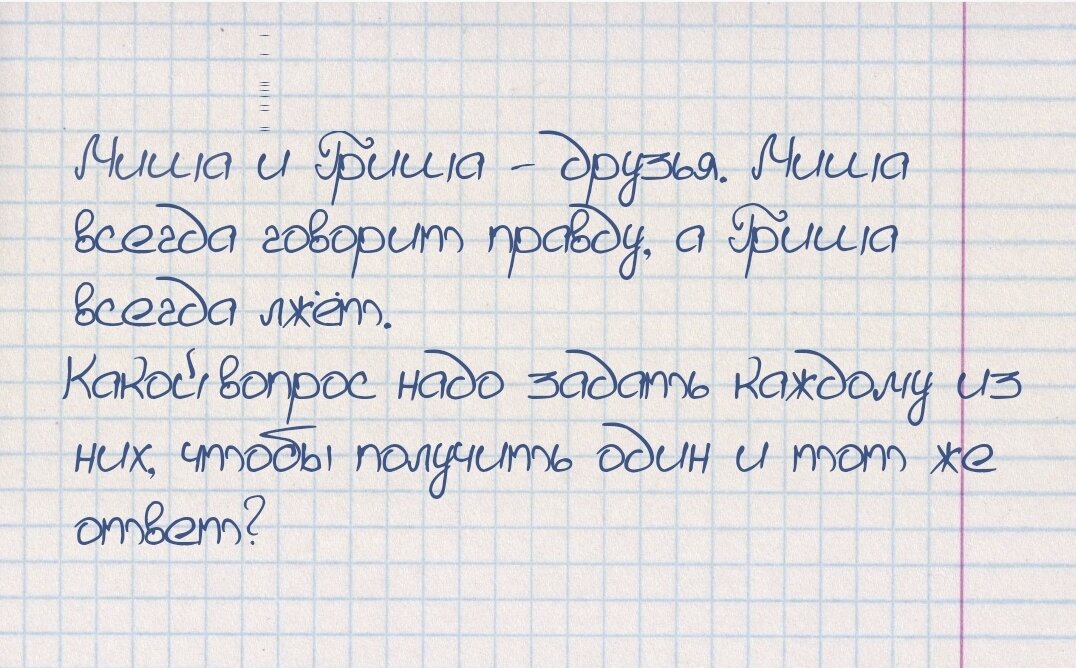 Миша и Гриша - друзья. Миша
всегда говорит правду, а Гриша
всегда лжёт.
Какой вопрос надо задать каждому из
них, чтобы получить один и тот же
ответ?